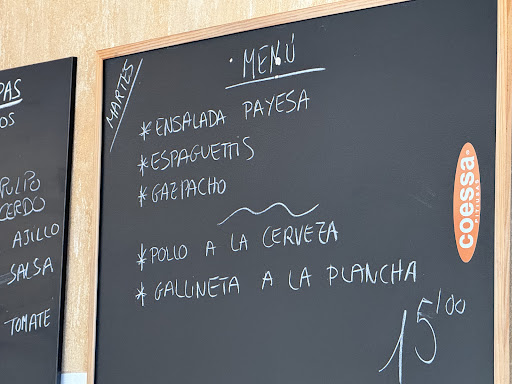 PAS
OS
PULPO
CERDO
AJILLO
SALSA
TOMATE
MARTES
MENÚ
*ENSALADA PAYESA
*ESPAGUETTIS
*GAZPACHO
*POLLO A LA CERVEZA
*GALLINETA A LA PLANCHA
15'00
coessa